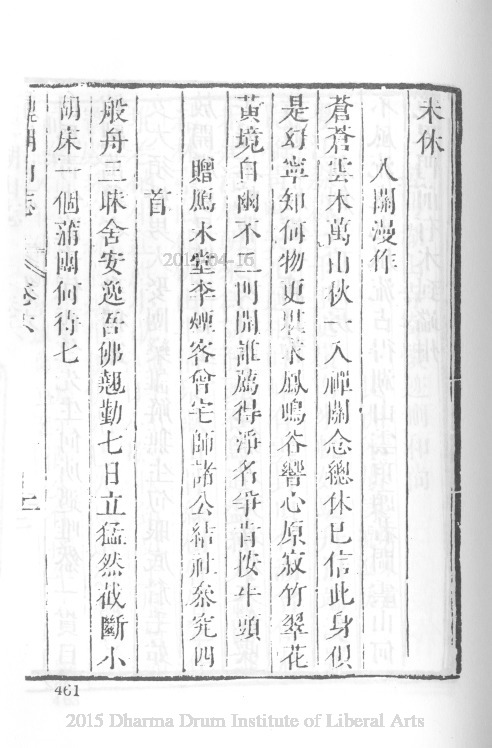 未休
入關漫作
蒼蒼雲木萬山秋一入禪關念總休已信此身俱
是幻寧知何物更堪求鳳鳴谷響心原寂竹翠花
黃境自幽不二門開誰薦得淨名爭肯按牛頭
贈鴈水堂李煙客曾宅師諸公結社叅究四
首
般舟三昧舍安逸吾佛翹勤七日立猛然截斷小
胡床一個蒲團何待七
湖山志 卷六
461
2015 Dharma Drum Institute of Liberal Arts